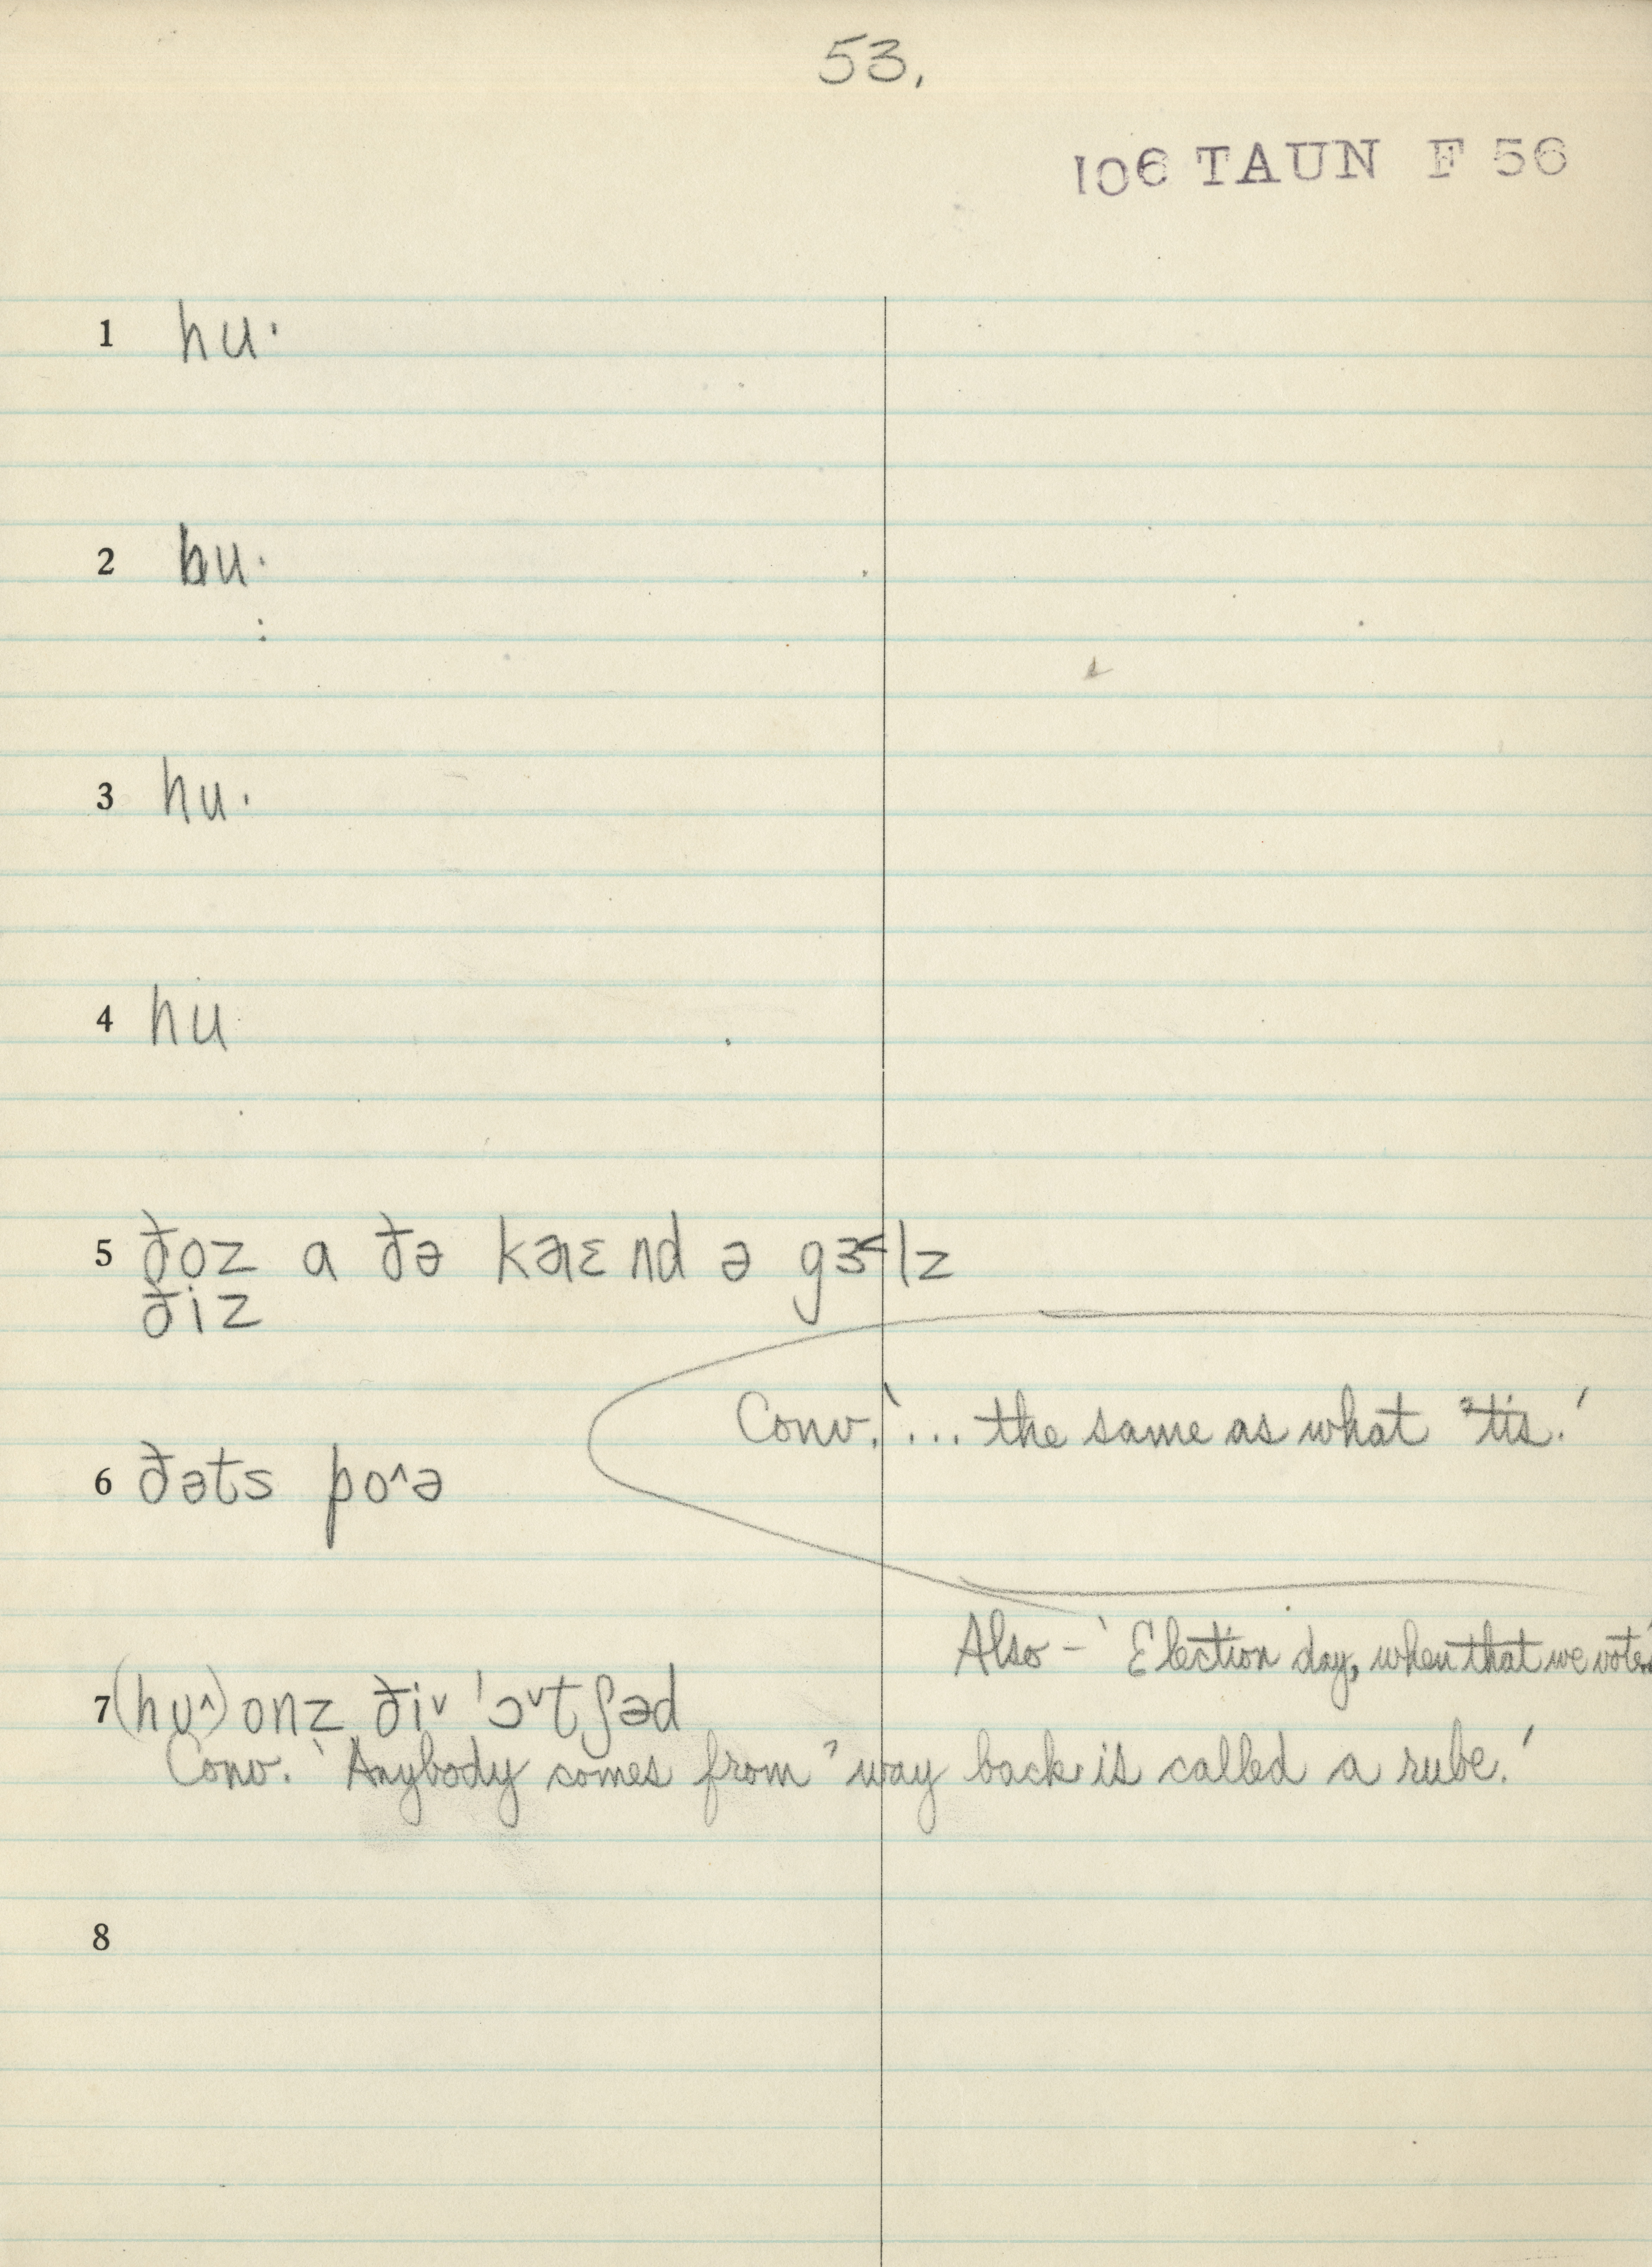 53.
106 TAUN F 56
1 hu·
2 hu·
:
3 hu·
4 hu
5 ðoz a ðə kəɪɛnd ə gɜ˂lz
ðiz
Conv. '... the same as what 'tis.'
6 ðəts po^ə
Also – 'Election day, when that we voted'
7 (hu^) onz ði˅ 'ɔ˅tʃəd
Conv. 'Anybody comes from 'way back is called a rube.'
8